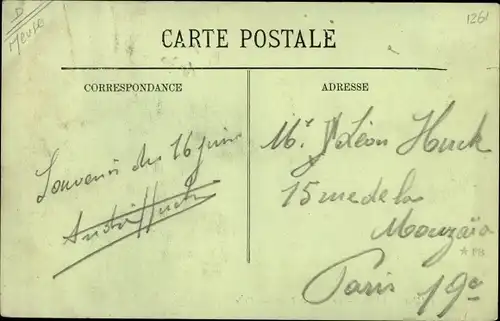 D
Meuse
1261
CARTE POSTALE
CORRESPONDANCE
ADRESSE
Souvenir du 16 juin
André Huck
Mr Léon Huck
15 rue de la
Mouzaïa
Paris 19e